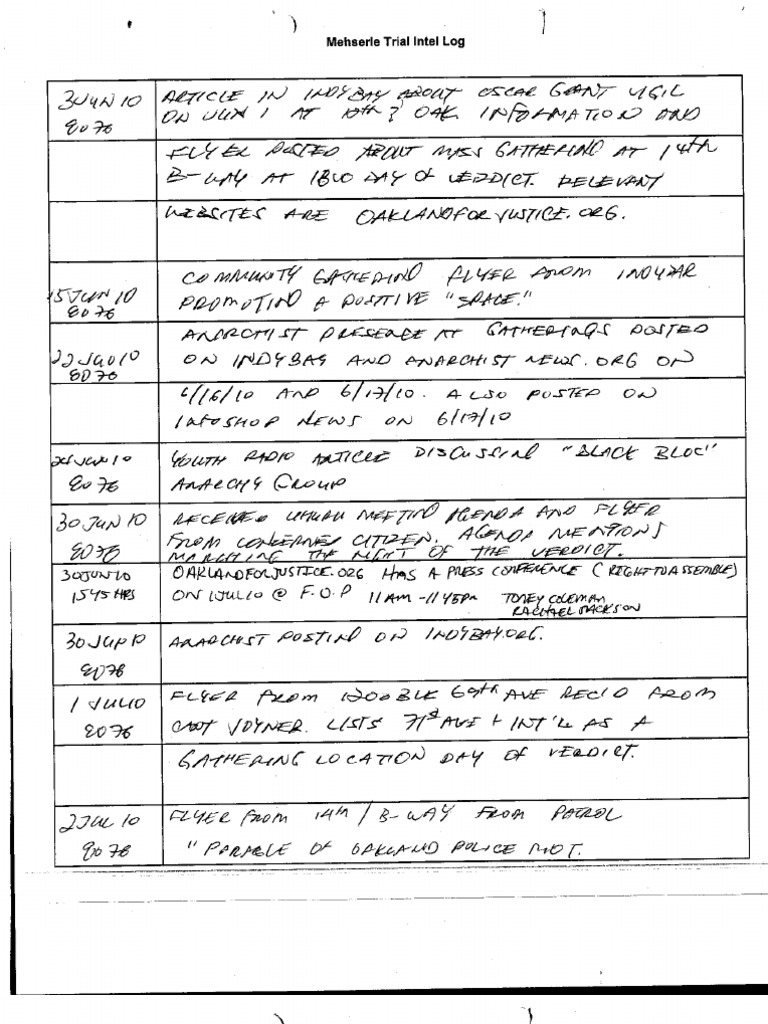 Mehserle Trial Intel Log
3JUN10 ARTICLE IN INDYBAY ABOUT OSCAR GRANT VIGIL
8076 ON JUN 1 AT 14th & OAK INFORMATION AND
FLYER POSTED ABOUT MASS GATHERING AT 14th
B-WAY AT 1800 DAY OF VERDICT. RELEVANT
WEBSITES ARE OAKLANDFORJUSTICE.ORG.
15JUN10 COMMUNITY GATHERING FLYER FROM INDYBAY
8076 PROMOTING A POSITIVE "SPACE."
ANARCHIST PRESENCE AT GATHERINGS POSTED
22JUN10 ON INDYBAY AND ANARCHIST NEWS.ORG ON
8076
6/16/10 AND 6/17/10. ALSO POSTED ON
INFOSHOP NEWS ON 6/17/10
JUN10 YOUTH RADIO ARTICLE DISCUSSING "BLACK BLOC"
8076 ANARCHY GROUP
30JUN10 RECEIVED UHURU MEETING AGENDA AND FLYER
8076 FROM CONCERNED CITIZEN. AGENDA MENTIONS
MARCHING THE NIGHT OF THE VERDICT.
30JUN10 OAKLANDFORJUSTICE.ORG HAS A PRESS CONFERENCE (RIGHT TO ASSEMBLE)
1545 HRS ON 1JUL10 @ F.O.P 11AM-1145PM TONEY COLEMAN
RACHAEL JACKSON
30JUN10 ANARCHIST POSTING ON INDYBAY.ORG.
8076
1JUL10 FLYER FROM 1200 BLK 69th AVE REC'D FROM
8076 CAPT JOYNER. LISTS 71st AVE + INT'L AS A
GATHERING LOCATION DAY OF VERDICT.
2JUL10 FLYER FROM 14th / B-WAY FROM PATROL
8076 "PARABLE OF OAKLAND POLICE RIOT.